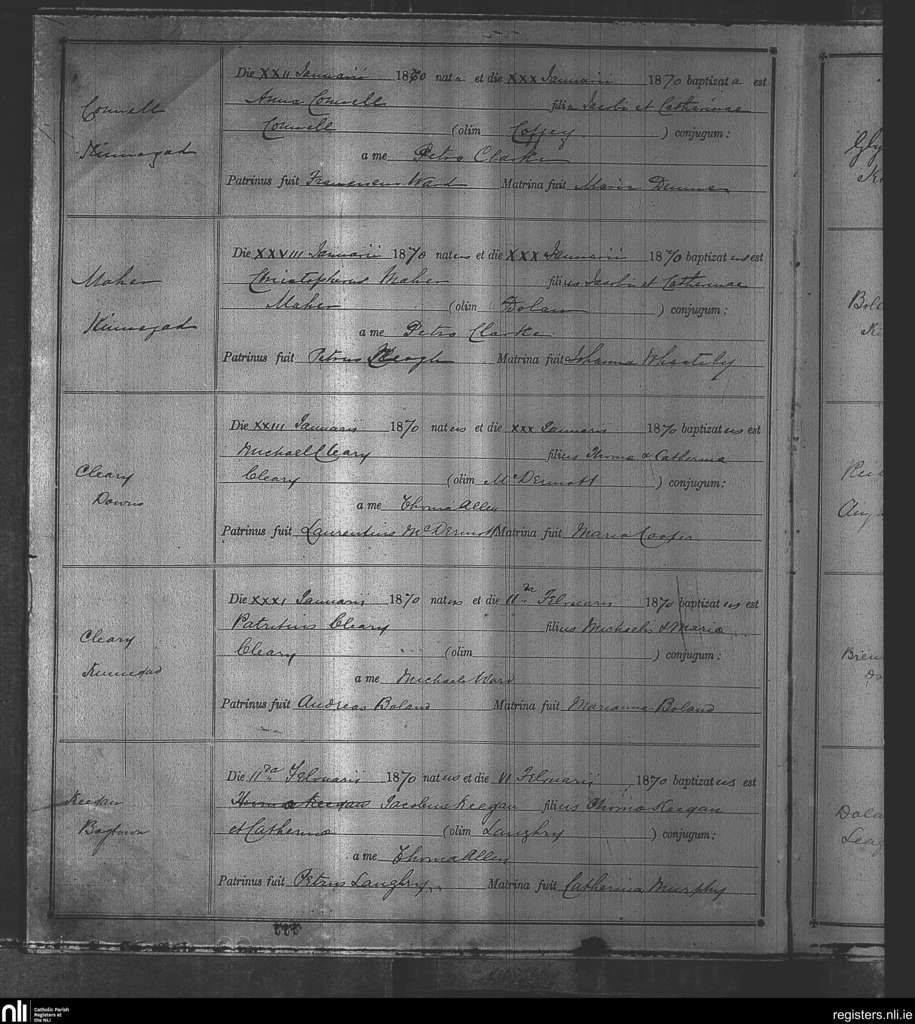 Conwell
Kinnegad
Die XXII Januarii 1870 nata et die XXX Januarii 1870 baptizata est
Anna Conwell filia Jacobi et Catherinae
Conwell (olim Coffey ) conjugum:
a me Petro Clarke
Patrinus fuit Ward Matrina fuit Maria
Maher
Kinnegad
Die XXVIII Januarii 1870 natus et die XXX Januarii 1870 baptizatus est
Christopherus Maher filius Jacobi et Catherinae
Maher (olim Dolan ) conjugum:
a me Petro Clarke
Patrinus fuit Petrus Keogh Matrina fuit Johanna Wheatly
Cleary
Downs
Die XXIII Januaris 1870 natus et die XXX Januaris 1870 baptizatus est
Michael Cleary filius Thoma & Catherina
Cleary (olim McDermott ) conjugum:
a me Thoma Allen
Patrinus fuit Laurentius McDermott Matrina fuit Maria Cooper
Cleary
Kinnegad
Die XXXI Januaris 1870 natus et die 11da Februaris 1870 baptizatus est
Patritius Cleary filius Michaelis & Maria
Cleary (olim ) conjugum:
a me Michaele Ward
Patrinus fuit Andreas Boland Matrina fuit Marianna Boland
Keegan
Bogtown
Die 11da Februarii 1870 natus et die VI Februarii 1870 baptizatus est
Thoma Keegan Jacobus Keegan filius Thoma Keegan
et Catherina (olim Langhry ) conjugum:
a me Thoma Allen
Patrinus fuit Petrus Langhry Matrina fuit Catherina Murphy
nli
Catholic Parish
Registers at
the NLI
registers.nli.ie